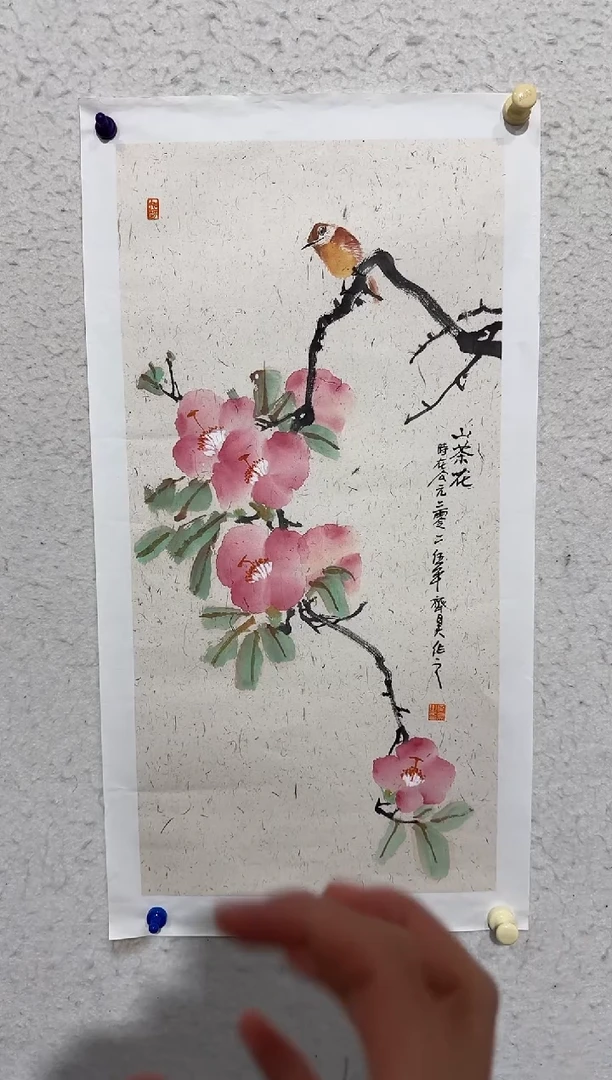 山茶花
時在公元二零二伍年齊昊作之